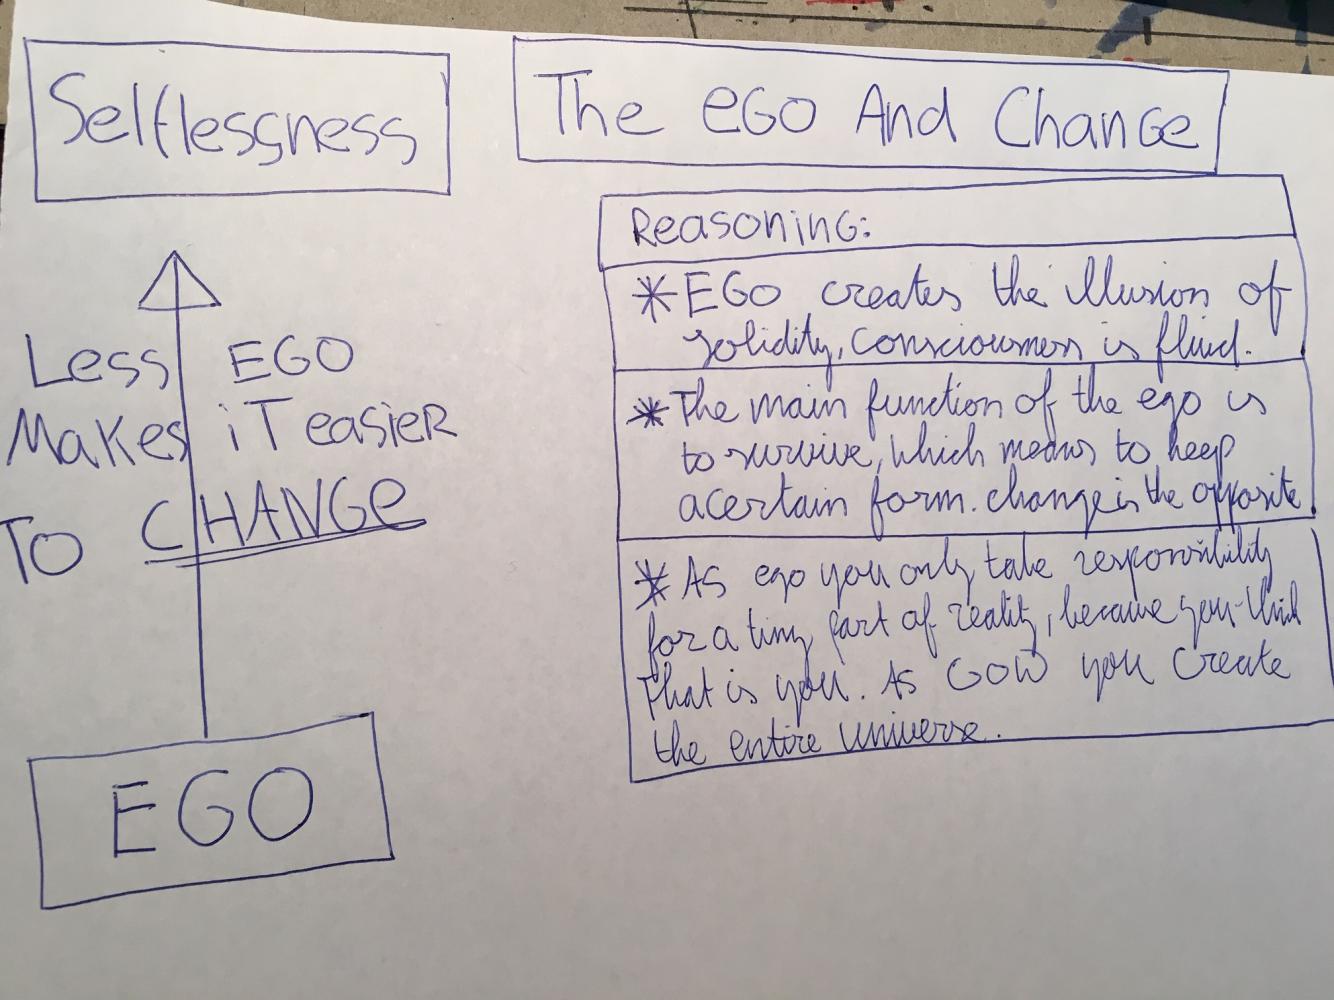 Selflessness
The EGO And Change
Less EGO
Makes iT easier
To CHANGe
EGO
Reasoning:
* EGO creates the illusion of
solidity, consciousness is fluid.
* The main function of the ego is
to survive, which means to keep
a certain form. change is the opposite
* As ego you only take responsibility
for a tiny part of reality, because you think
that is you. As GOD you create
the entire universe.